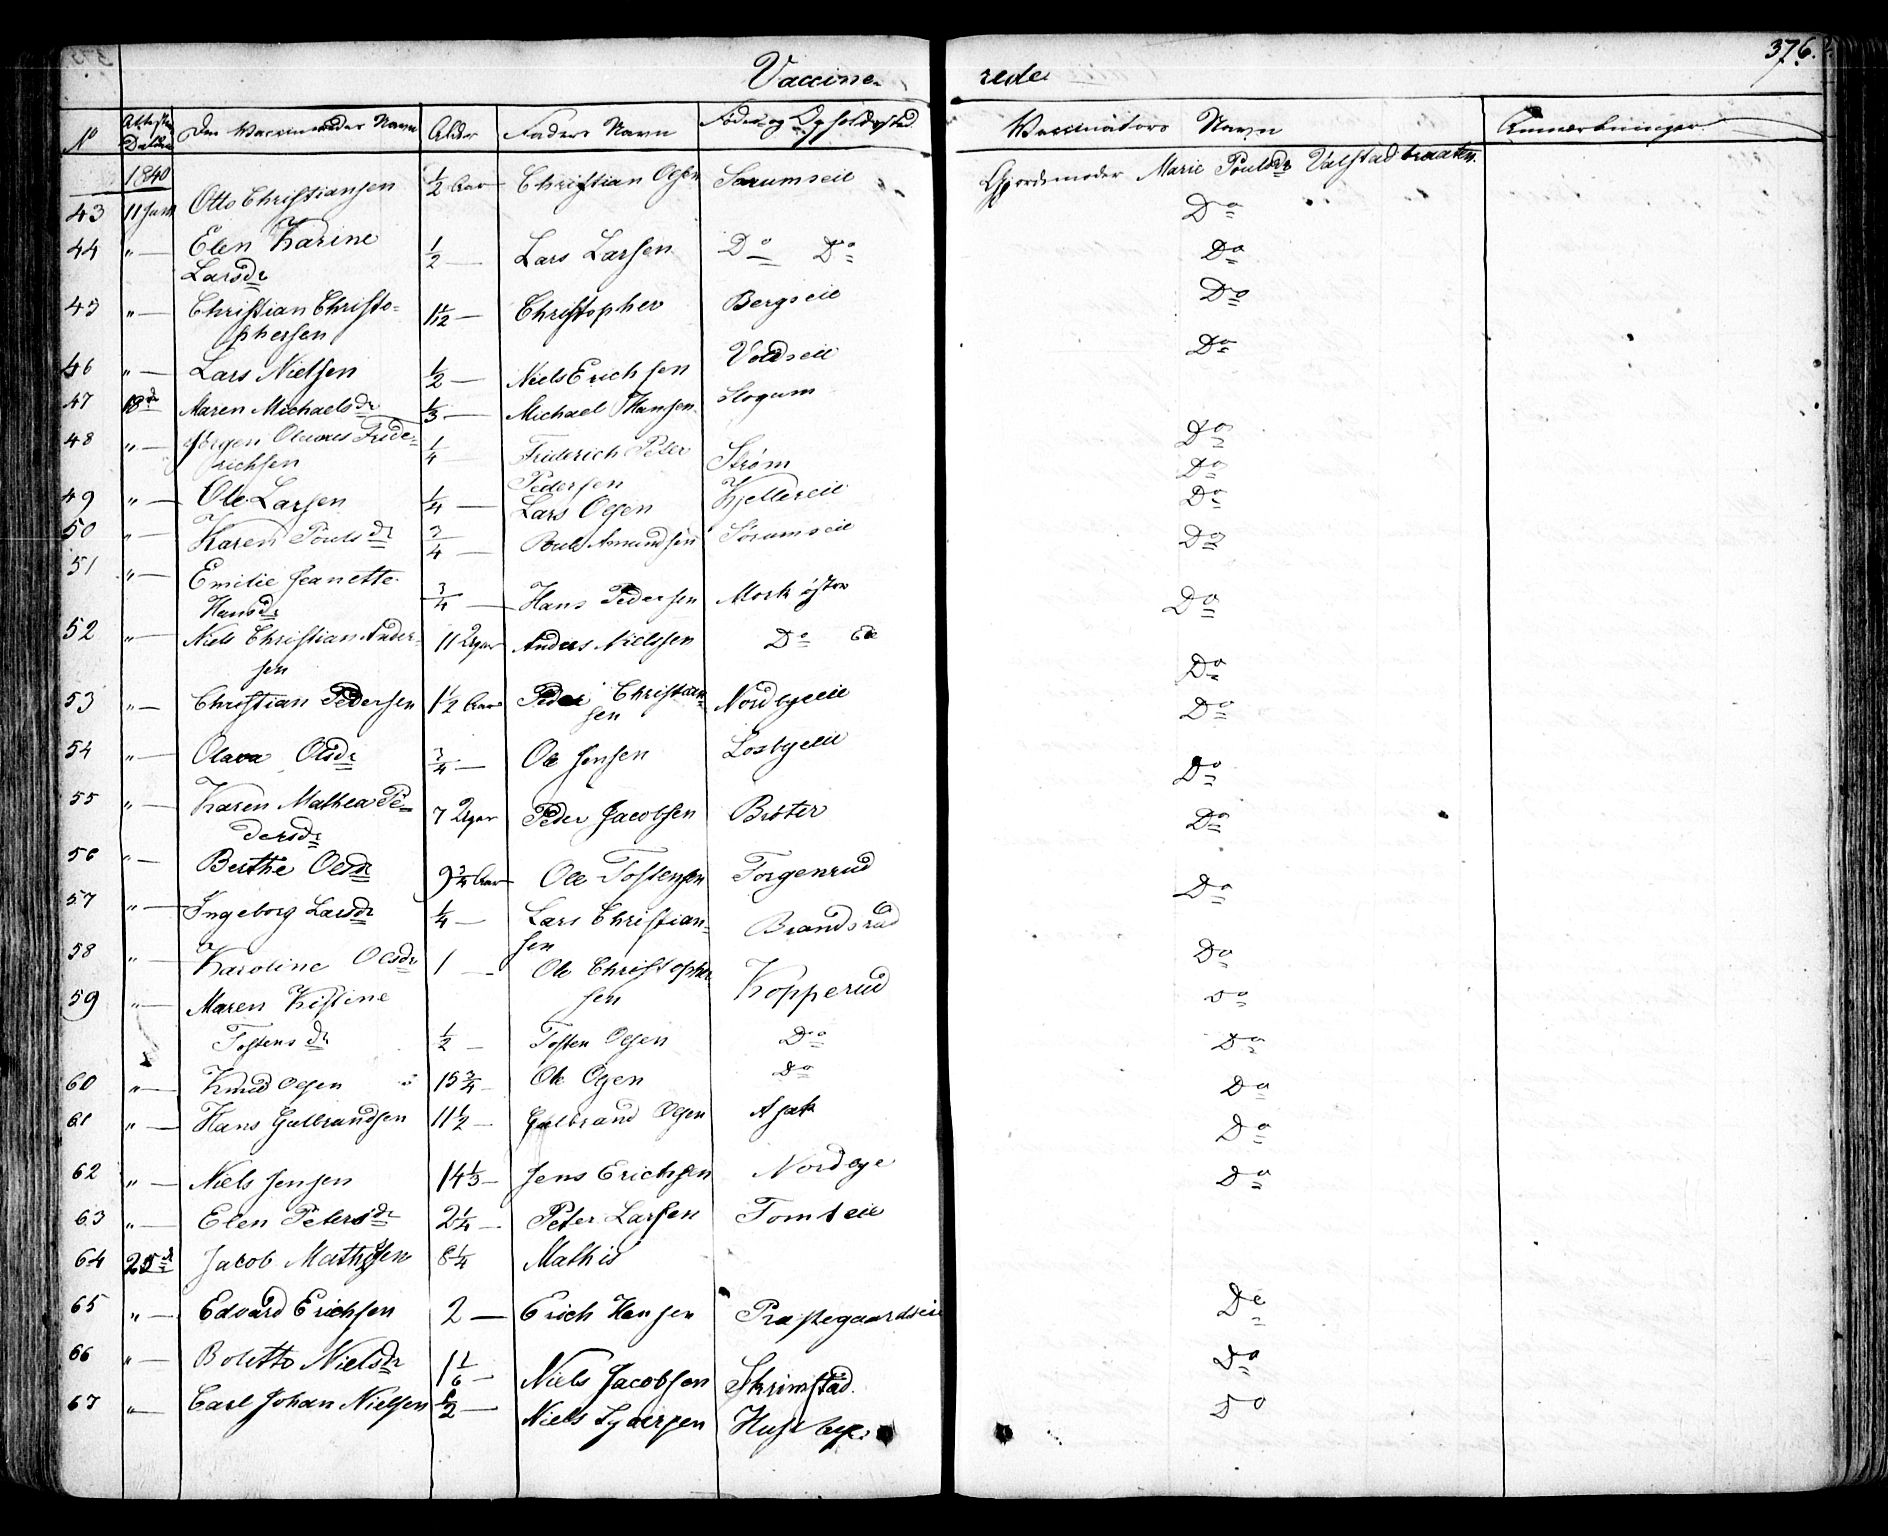 376.
Vaccine- rede
No Attesten Datum Den Vaccineredes Navn Alder Faders Navn Føde og Opholdssted Vaccinators Navn Anmærkninger
1840
43 11 Juni Otto Christiansen 1/2 Aar Christian Olsen Sørumseie Gjordemoder Marie Poulsdr Valstadbraaten
Do
44 " — Elen Karine 1/2 — Lars Larsen Do Do Do
Larsdr
45 " — Christian Christo- 1 1/12 — Christopher Bergseie Do
phersen
46 " — Lars Nielsen 1/2 — Niels Erichsen Voldseie Do
47 18d Maren Michaelsdr 1/3 — Michael Hansen Slogum
48 " — Jørgen Olaves Fride- 1/4 — Friderich Peter Strøm Do
richsen Pedersen Do
49 " — Ole Larsen 1/4 — Lars Olsen Kjellereie Do
50 " — Karen Poulsdr 3/4 — Poul Amundsen Sørumseie Do
51 " — Emilie Jeanette 3/4 — Hans Pedersen Mork østre Do
Hansdr
52 " — Niels Christian Ander- 11 Uger Anders Nielssen Do Eie Do
sen
53 " — Christian Pedersen 1 1/2 Aar Peder Christian- Nordbyeie Do
sen
54 " — Olava Olsdr 3/4 — Ole Jensen Losbyeie Do
55 " — Karen Mathea Pe- 7 Uger Peder Jacobsen Brøter Do
dersdr
56 " — Berthe Olsdr 9 3/4 Aar Ole Tostensen Torgenrud Do
57 " — Ingeborg Larsdr 1/4 — Lars Christian- Brandsrud
sen
58 " — Karoline Olsdr 1 — Ole Christopher Kopperud Do
sen
59 " — Maren Kistine Do
Tostensdr 1/2 — Tosten Olsen Do Do
60 " — Knud Olsen 15 3/4 — Ole Olsen Do Do
61 " — Hans Gulbrandsen 11 1/2 — Gulbrand Olsen Asak Do
62 " — Niels Jensen 14 1/3 — Jens Erichsen Nordbye Do
63 " — Elen Petersdr 2 1/4 — Peter Larsen Tomteie
64 25d Jacob Mathisen 8 1/4 Mathis
65 " — Edvard Erichsen 2 — Erich Hansen Præstegaardseie Do
66 " — Bolette Nielsdr 1 1/6 — Niels Jacobsen Skrimstad Do
67 " — Carl Johan Nielsen 1/2 — Niels Syversen Husebye Do